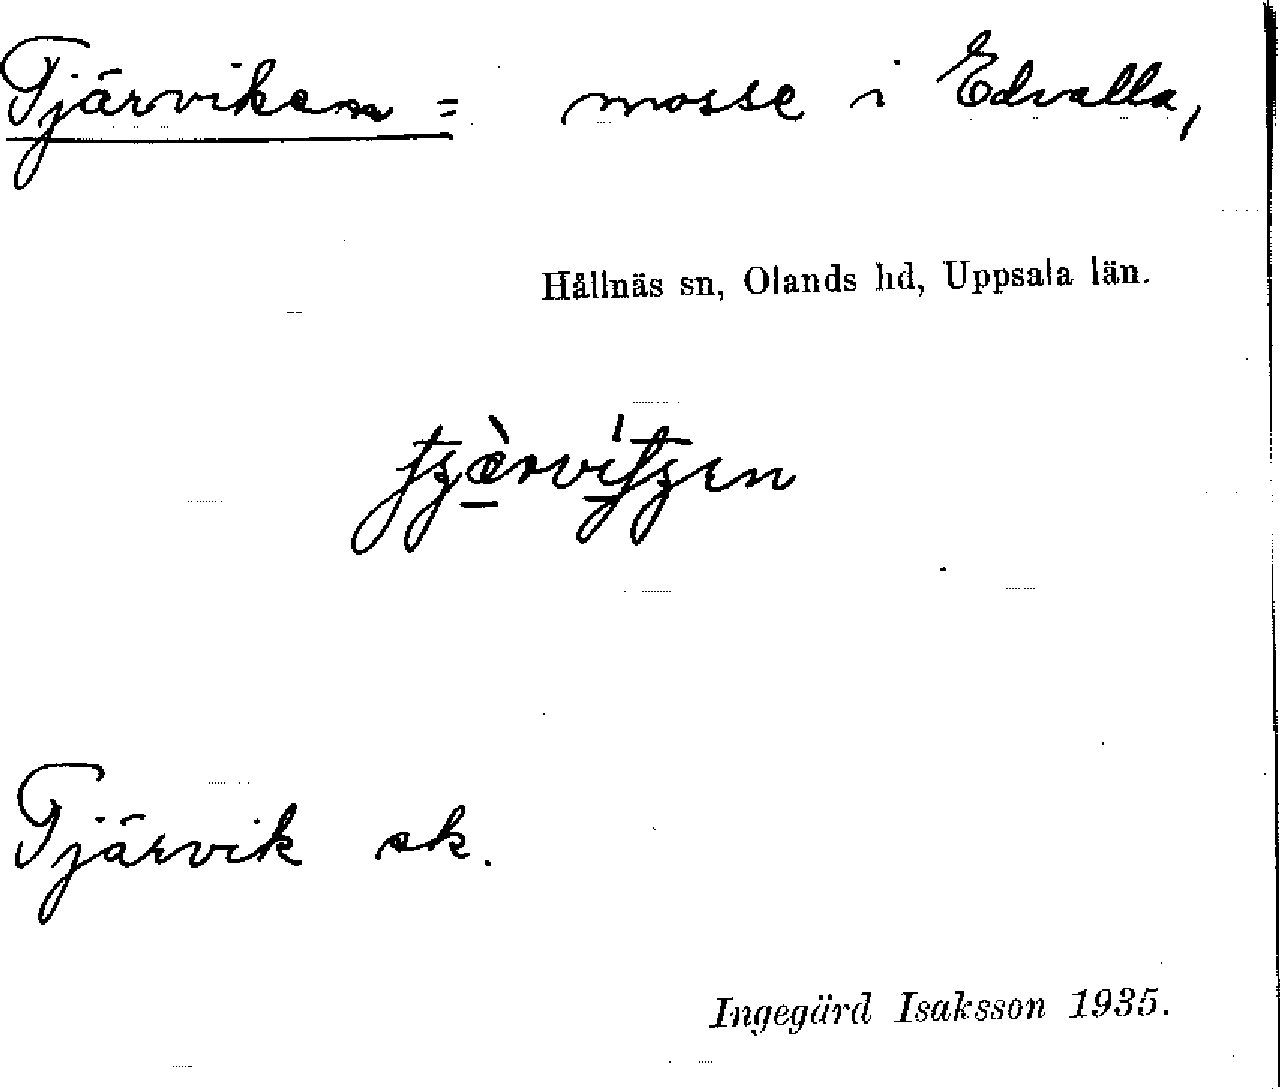 Tjärviken = mosse i Edvalla,
Hållnäs sn, Olands hd, Uppsala län.
Tjärvik sk.
Ingegärd Isaksson 1935.